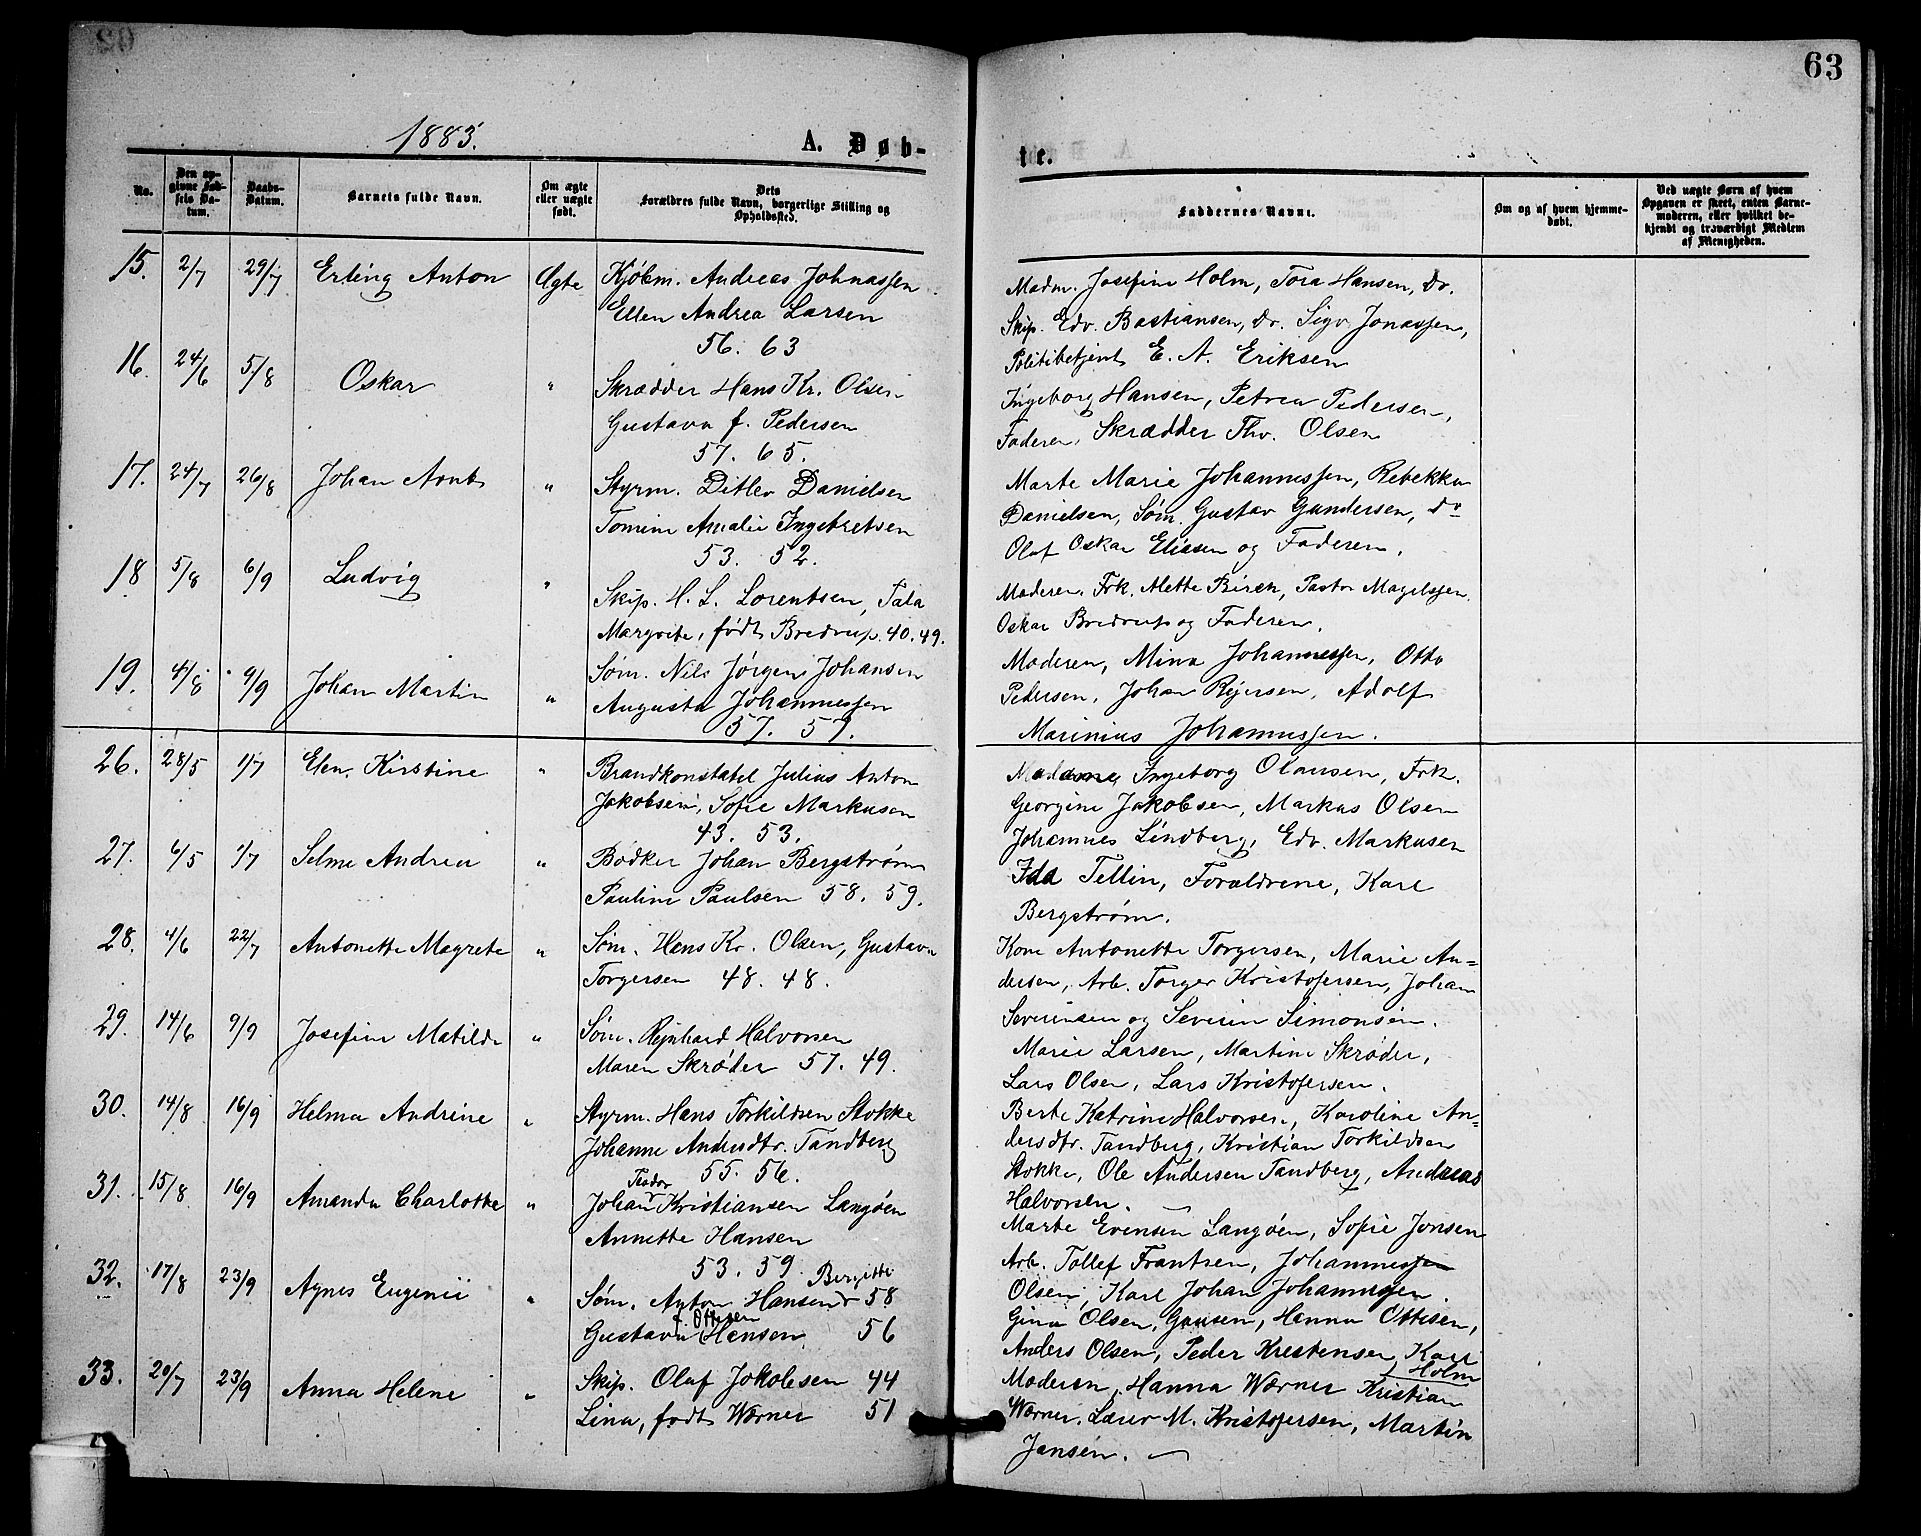 63
1883.
A. Døb-
te.
No.
Den op-
givne Fød-
sels Da-
tum.
Daabs-
Datum.
Barnets fulde Navn.
Om ægte
eller uægte
født.
Dets
Forældres fulde Navn, borgerlige Stilling og
Opholdssted.
Faddernes Navne.
Om og af hvem hjemme-
døbt.
Ved uægte Børn af hvem
Opgaven er skeet, enten Barne-
moderen, eller hvilket be-
kjendt og troværdigt Medlem
af Menigheden.
15. 2/7 29/7 Erling Anton Ægte Kjøbm. Andreas Johnassen
Ellen Andrea Larsen
56. 63
Madm. Josefine Holm, Tora Hansen, Do.
Skip. Edv. Bastiansen, Do. Sigv Jonassen,
Politibetjent E. A. Eriksen
16. 24/6 5/8 Oskar " Skrædder Hans Kr. Olsen
Gustava f. Pedersen
57. 65.
Ingeborg Hansen, Petrea Pedersen,
Faderen, Skrædder Thv. Olsen
17. 24/7 26/8 Johan Arnt " Styrm. Ditlev Danielsen
Tomine Amalie Ingebretsen
53. 52.
Marte Marie Johannessen, Rebekka
Danielsen, Søm. Gustav Gundersen, Do
Oluf Oskar Eliesen og Faderen.
18 5/8 6/9 Ludvig " Skip. H. L. Lorentsen, Tala
Margrete, født Bredrup. 40. 49.
Moderen, Frk. Alette Birch, Pastor Magelssen
Oskar Bredrup og Faderen.
19. 4/8 9/9 Johan Martin " Søm. Nils Jørgen Johansen
Augusta Johannessen
57. 57.
Moderen, Mina Johannessen, Otto
Pedersen, Johan Rejersen, Adolf
Marinius Johannessen.
26. 28/5 1/7 Elen Kirstine " Brandkonstabel Julius Anton
Jakobsen, Sofie Markusen
43. 53.
Madame Ingeborg Olausen, Frk.
Georgine Jakobsen, Markus Olsen
Johannes Lindberg, Edv. Markusen
27. 6/5 1/7 Selma Andrea " Bødker Johan Bergstrøm
Pauline Paulsen 58. 59.
Ida Tellin, Forældrene, Karl
Bergstrøm.
28. 4/6 22/7 Antonette Magrete " Søm. Hans Kr. Olsen, Gustava
Torgersen 48. 48.
Kone Antonette Torgersen, Marie An=
dersen, Arb. Torger Kristofersen, Johan
Severinsen og Severin Simonsen.
29. 14/6 9/9 Josefine Matilde " Søm. Rejnhard Halvorsen
Maren Skrøder 57. 49.
Marie Larsen, Martine Skrøder,
Lars Olsen, Lars Kristofersen.
30. 14/8 16/9 Helma Andrine " Styrm. Hans Torkildsen Stokke
Johanne Andersdtr. Tandberg
55. 56.
Berte Katrine Halvorsen, Karoline An=
dersdtr. Tandberg, Kristian Torkildsen
Stokke, Ole Andersen Tandberg, Andreas
Halvorsen.
31. 15/8 16/9 Amanda Charlotte " Johan Teodor Kristiansen Langøen
Annette Hansen
53. 59.
Marte Evensen Langøen, Sofie Jonsen
Arb. Tollef Frantsen, Johannessen
Olsen, Karl Johan Johannessen.
32. 17/8 23/9 Agnes Eugenie " Søm. Anton Hansen Bergitte 58
Gustava f. Ottesen Hansen 56
Gina Olsen, Gausen, Hanna Ottesen,
Anders Olsen, Peder Krestensen, Karl
Holm
33. 20/7 23/9 Anna Helene " Skip. Oluf Jokobsen 44
Lina, født Wørner 51
Moderen, Hanna Wørner Kristian
Wørner, Lærer M. Kristofersen, Martin
Jansen.